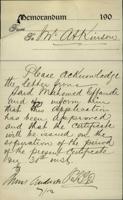 Memorandum 190
From
To Mr Atkinson
Please acknowledge
the letter from
Said Mohamed Effendi
and inform him
that his application
has been approved
and that the certificate
will be issued on the
expiration of the period
of the present certificate
30
7/12